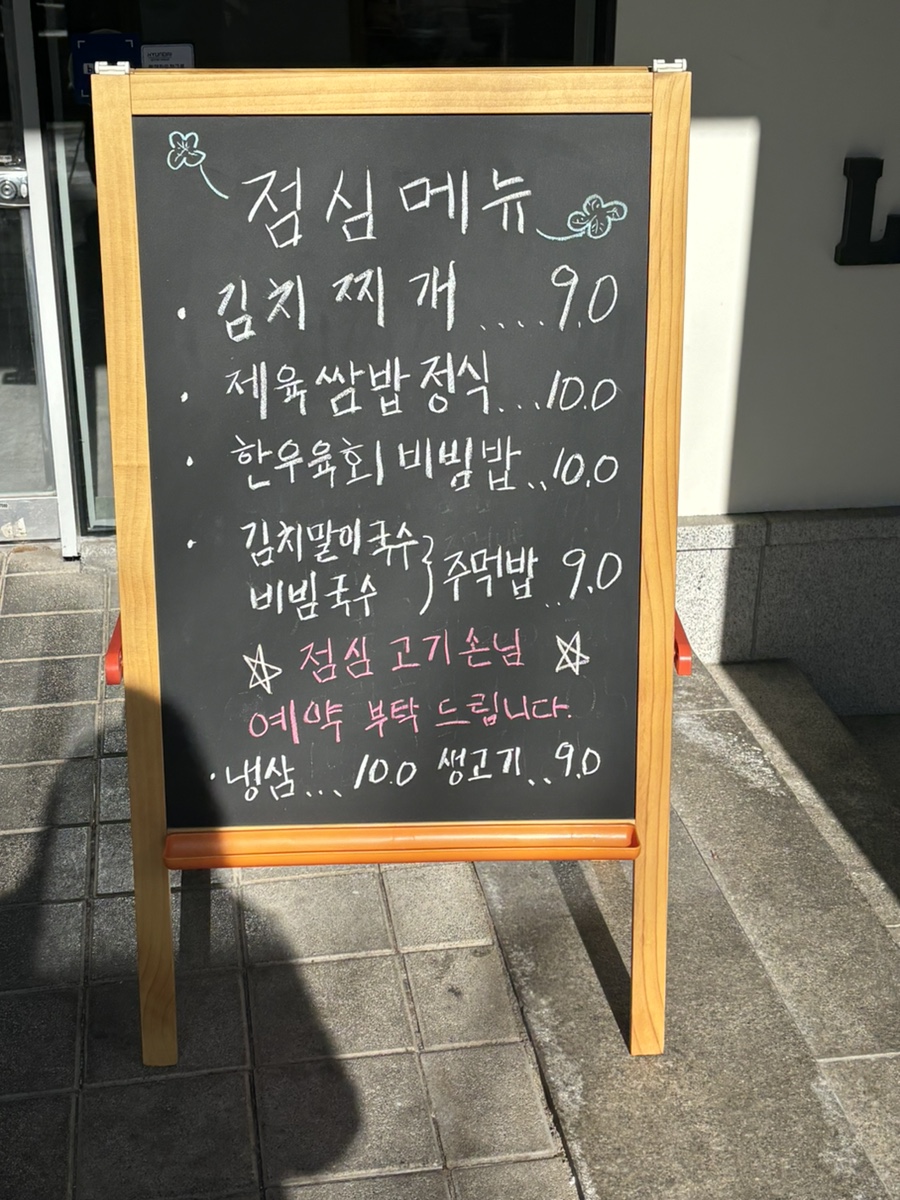 점심메뉴
· 김치찌개 .... 9.0
· 제육쌈밥정식 ... 10.0
· 한우육회비빔밥 .. 10.0
· 김치말이국수
비빔국수 } 주먹밥 .. 9.0
☆ 점심 고기손님 ☆
예약 부탁 드립니다.
· 냉삼 ... 10.0 생고기 .. 9.0
L